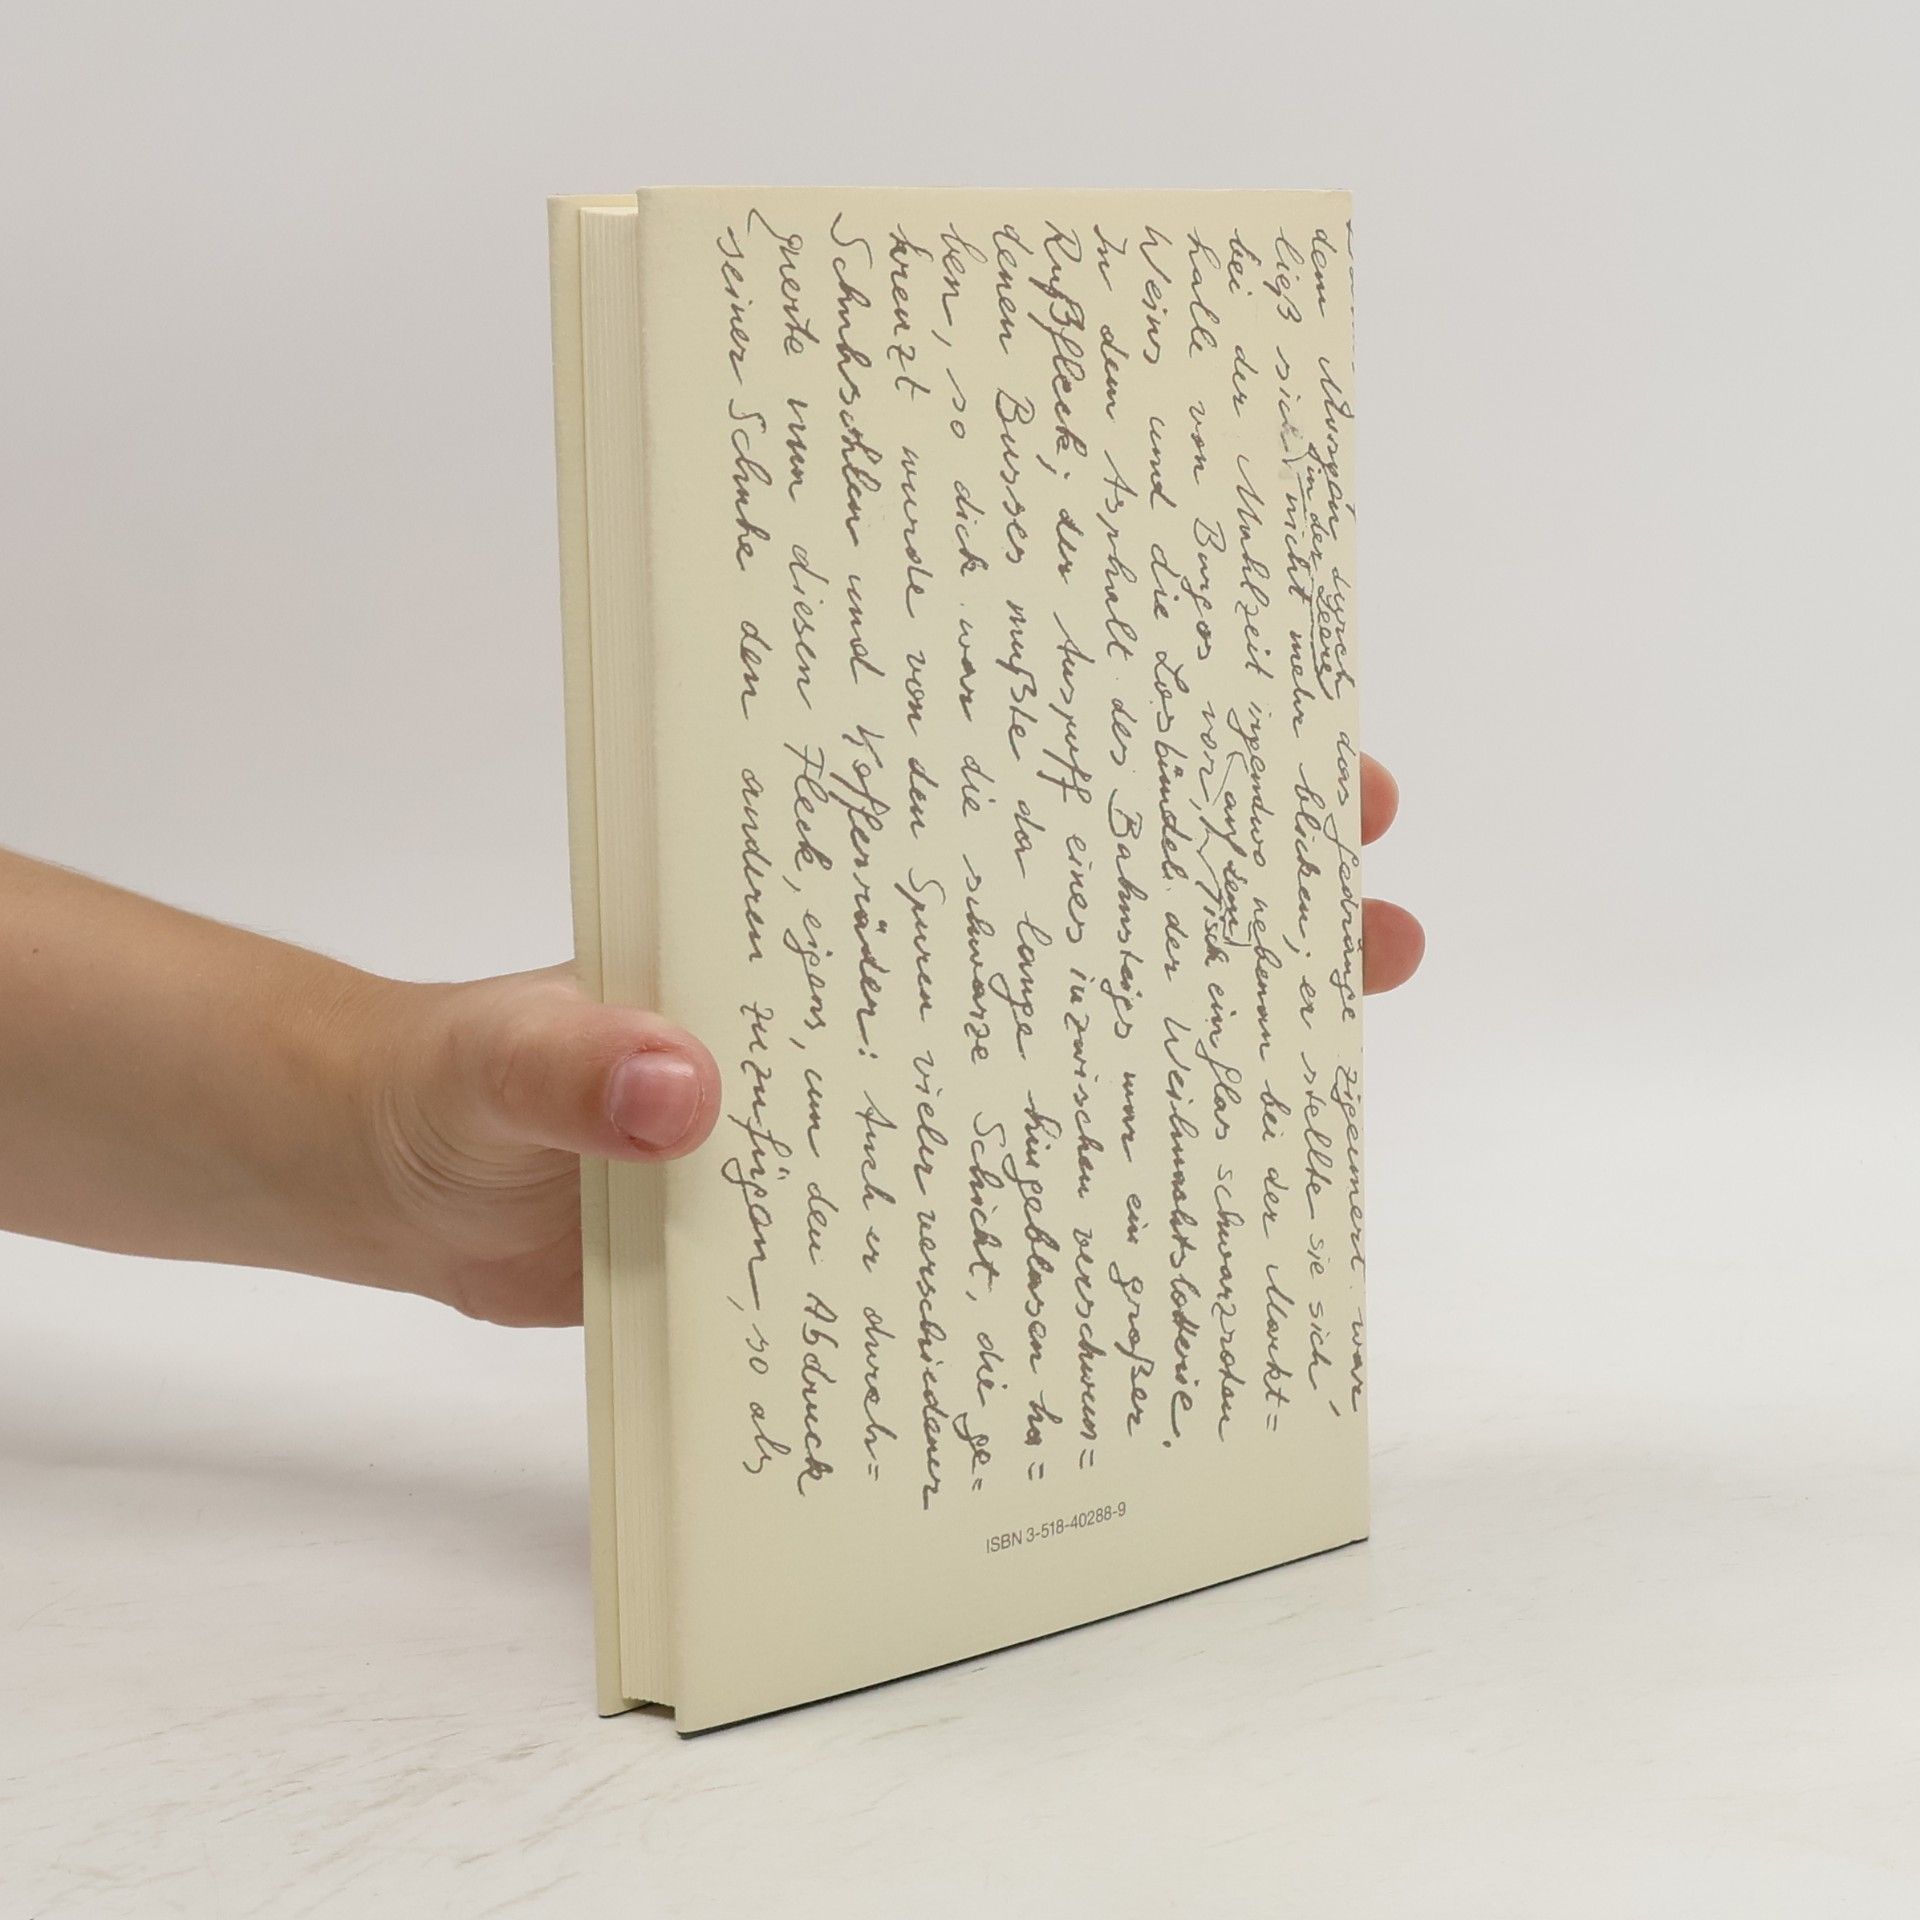 dem Morgen durch das Gedränge zigeunert war,
in der Leere
ließ sich nicht mehr blicken; er stellte sie sich
bei der Mahlzeit irgendwo nebenan bei der Markt=
auf dem
halle von Burgos vor, Tisch ein Glas schwarzroten
Weins und die Losbündel der Weihnachtslotterie.
In dem Asphalt des Bahnsteigs war ein großer
Rußfleck; der Auspuff eines inzwischen verschwun=
denen Busses mußte da lange hingeblasen ha=
ben, so dick war die schwarze Schicht, die ge=
kreuzt wurde von den Spuren vieler verschiedener
Schuhsohlen und Kofferräder: Auch er durch=
querte nun diesen Fleck, eigens, um den Abdruck
seiner Schuhe den anderen zuzufügen, so als
ISBN 3-518-40288-9